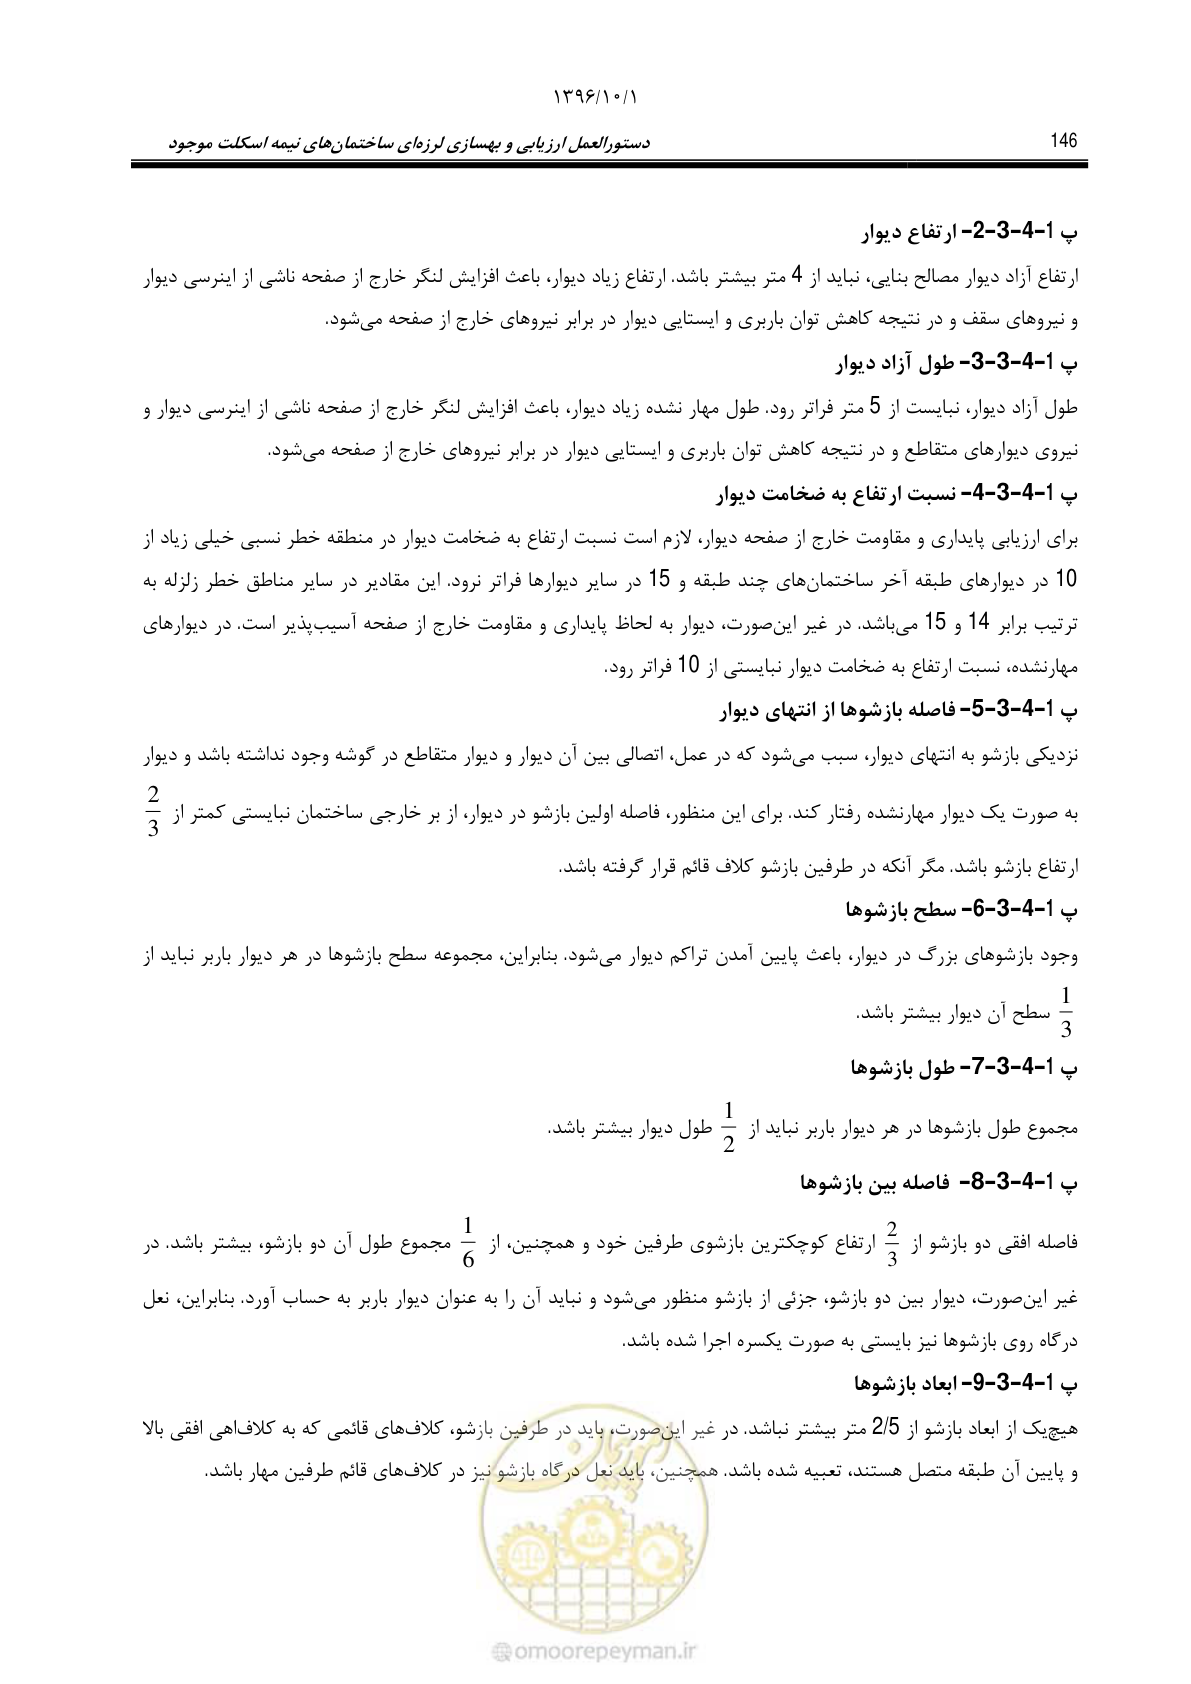 ۱۳۹۶/۱۰/۱
146 دستورالعمل ارزیابی و بهسازی لرزه‌ای ساختمان‌های نیمه اسکلت موجود
پ 1-4-3-2- ارتفاع دیوار
ارتفاع آزاد دیوار مصالح بنایی، نباید از 4 متر بیشتر باشد. ارتفاع زیاد دیوار، باعث افزایش لنگر خارج از صفحه ناشی از اینرسی دیوار
و نیروهای سقف و در نتیجه کاهش توان باربری و ایستایی دیوار در برابر نیروهای خارج از صفحه می‌شود.
پ 1-4-3-3- طول آزاد دیوار
طول آزاد دیوار، نبایست از 5 متر فراتر رود. طول مهار نشده زیاد دیوار، باعث افزایش لنگر خارج از صفحه ناشی از اینرسی دیوار و
نیروی دیوارهای متقاطع و در نتیجه کاهش توان باربری و ایستایی دیوار در برابر نیروهای خارج از صفحه می‌شود.
پ 1-4-3-4- نسبت ارتفاع به ضخامت دیوار
برای ارزیابی پایداری و مقاومت خارج از صفحه دیوار، لازم است نسبت ارتفاع به ضخامت دیوار در منطقه خطر نسبی خیلی زیاد از
10 در دیوارهای طبقه آخر ساختمان‌های چند طبقه و 15 در سایر دیوارها فراتر نرود. این مقادیر در سایر مناطق خطر زلزله به
ترتیب برابر 14 و 15 می‌باشد. در غیر این‌صورت، دیوار به لحاظ پایداری و مقاومت خارج از صفحه آسیب‌پذیر است. در دیوارهای
مهارنشده، نسبت ارتفاع به ضخامت دیوار نبایستی از 10 فراتر رود.
پ 1-4-3-5- فاصله بازشوها از انتهای دیوار
نزدیکی بازشو به انتهای دیوار، سبب می‌شود که در عمل، اتصالی بین آن دیوار و دیوار متقاطع در گوشه وجود نداشته باشد و دیوار
به صورت یک دیوار مهارنشده رفتار کند. برای این منظور، فاصله اولین بازشو در دیوار، از بر خارجی ساختمان نبایستی کمتر از 2/3
ارتفاع بازشو باشد. مگر آنکه در طرفین بازشو کلاف قائم قرار گرفته باشد.
پ 1-4-3-6- سطح بازشوها
وجود بازشوهای بزرگ در دیوار، باعث پایین آمدن تراکم دیوار می‌شود. بنابراین، مجموعه سطح بازشوها در هر دیوار باربر نباید از
1/3 سطح آن دیوار بیشتر باشد.
پ 1-4-3-7- طول بازشوها
مجموع طول بازشوها در هر دیوار باربر نباید از 1/2 طول دیوار بیشتر باشد.
پ 1-4-3-8- فاصله بین بازشوها
فاصله افقی دو بازشو از 2/3 ارتفاع کوچکترین بازشوی طرفین خود و همچنین، از 1/6 مجموع طول آن دو بازشو، بیشتر باشد. در
غیر این‌صورت، دیوار بین دو بازشو، جزئی از بازشو منظور می‌شود و نباید آن را به عنوان دیوار باربر به حساب آورد. بنابراین، نعل
درگاه روی بازشوها نیز بایستی به صورت یکسره اجرا شده باشد.
پ 1-4-3-9- ابعاد بازشوها
هیچ‌یک از ابعاد بازشو از 2/5 متر بیشتر نباشد. در غیر این‌صورت، باید در طرفین بازشو، کلاف‌های قائمی که به کلاف‌اهی افقی بالا
و پایین آن طبقه متصل هستند، تعبیه شده باشد. همچنین، باید نعل درگاه بازشو نیز در کلاف‌های قائم طرفین مهار باشد.
امور پیمان
@omoorepeyman.ir